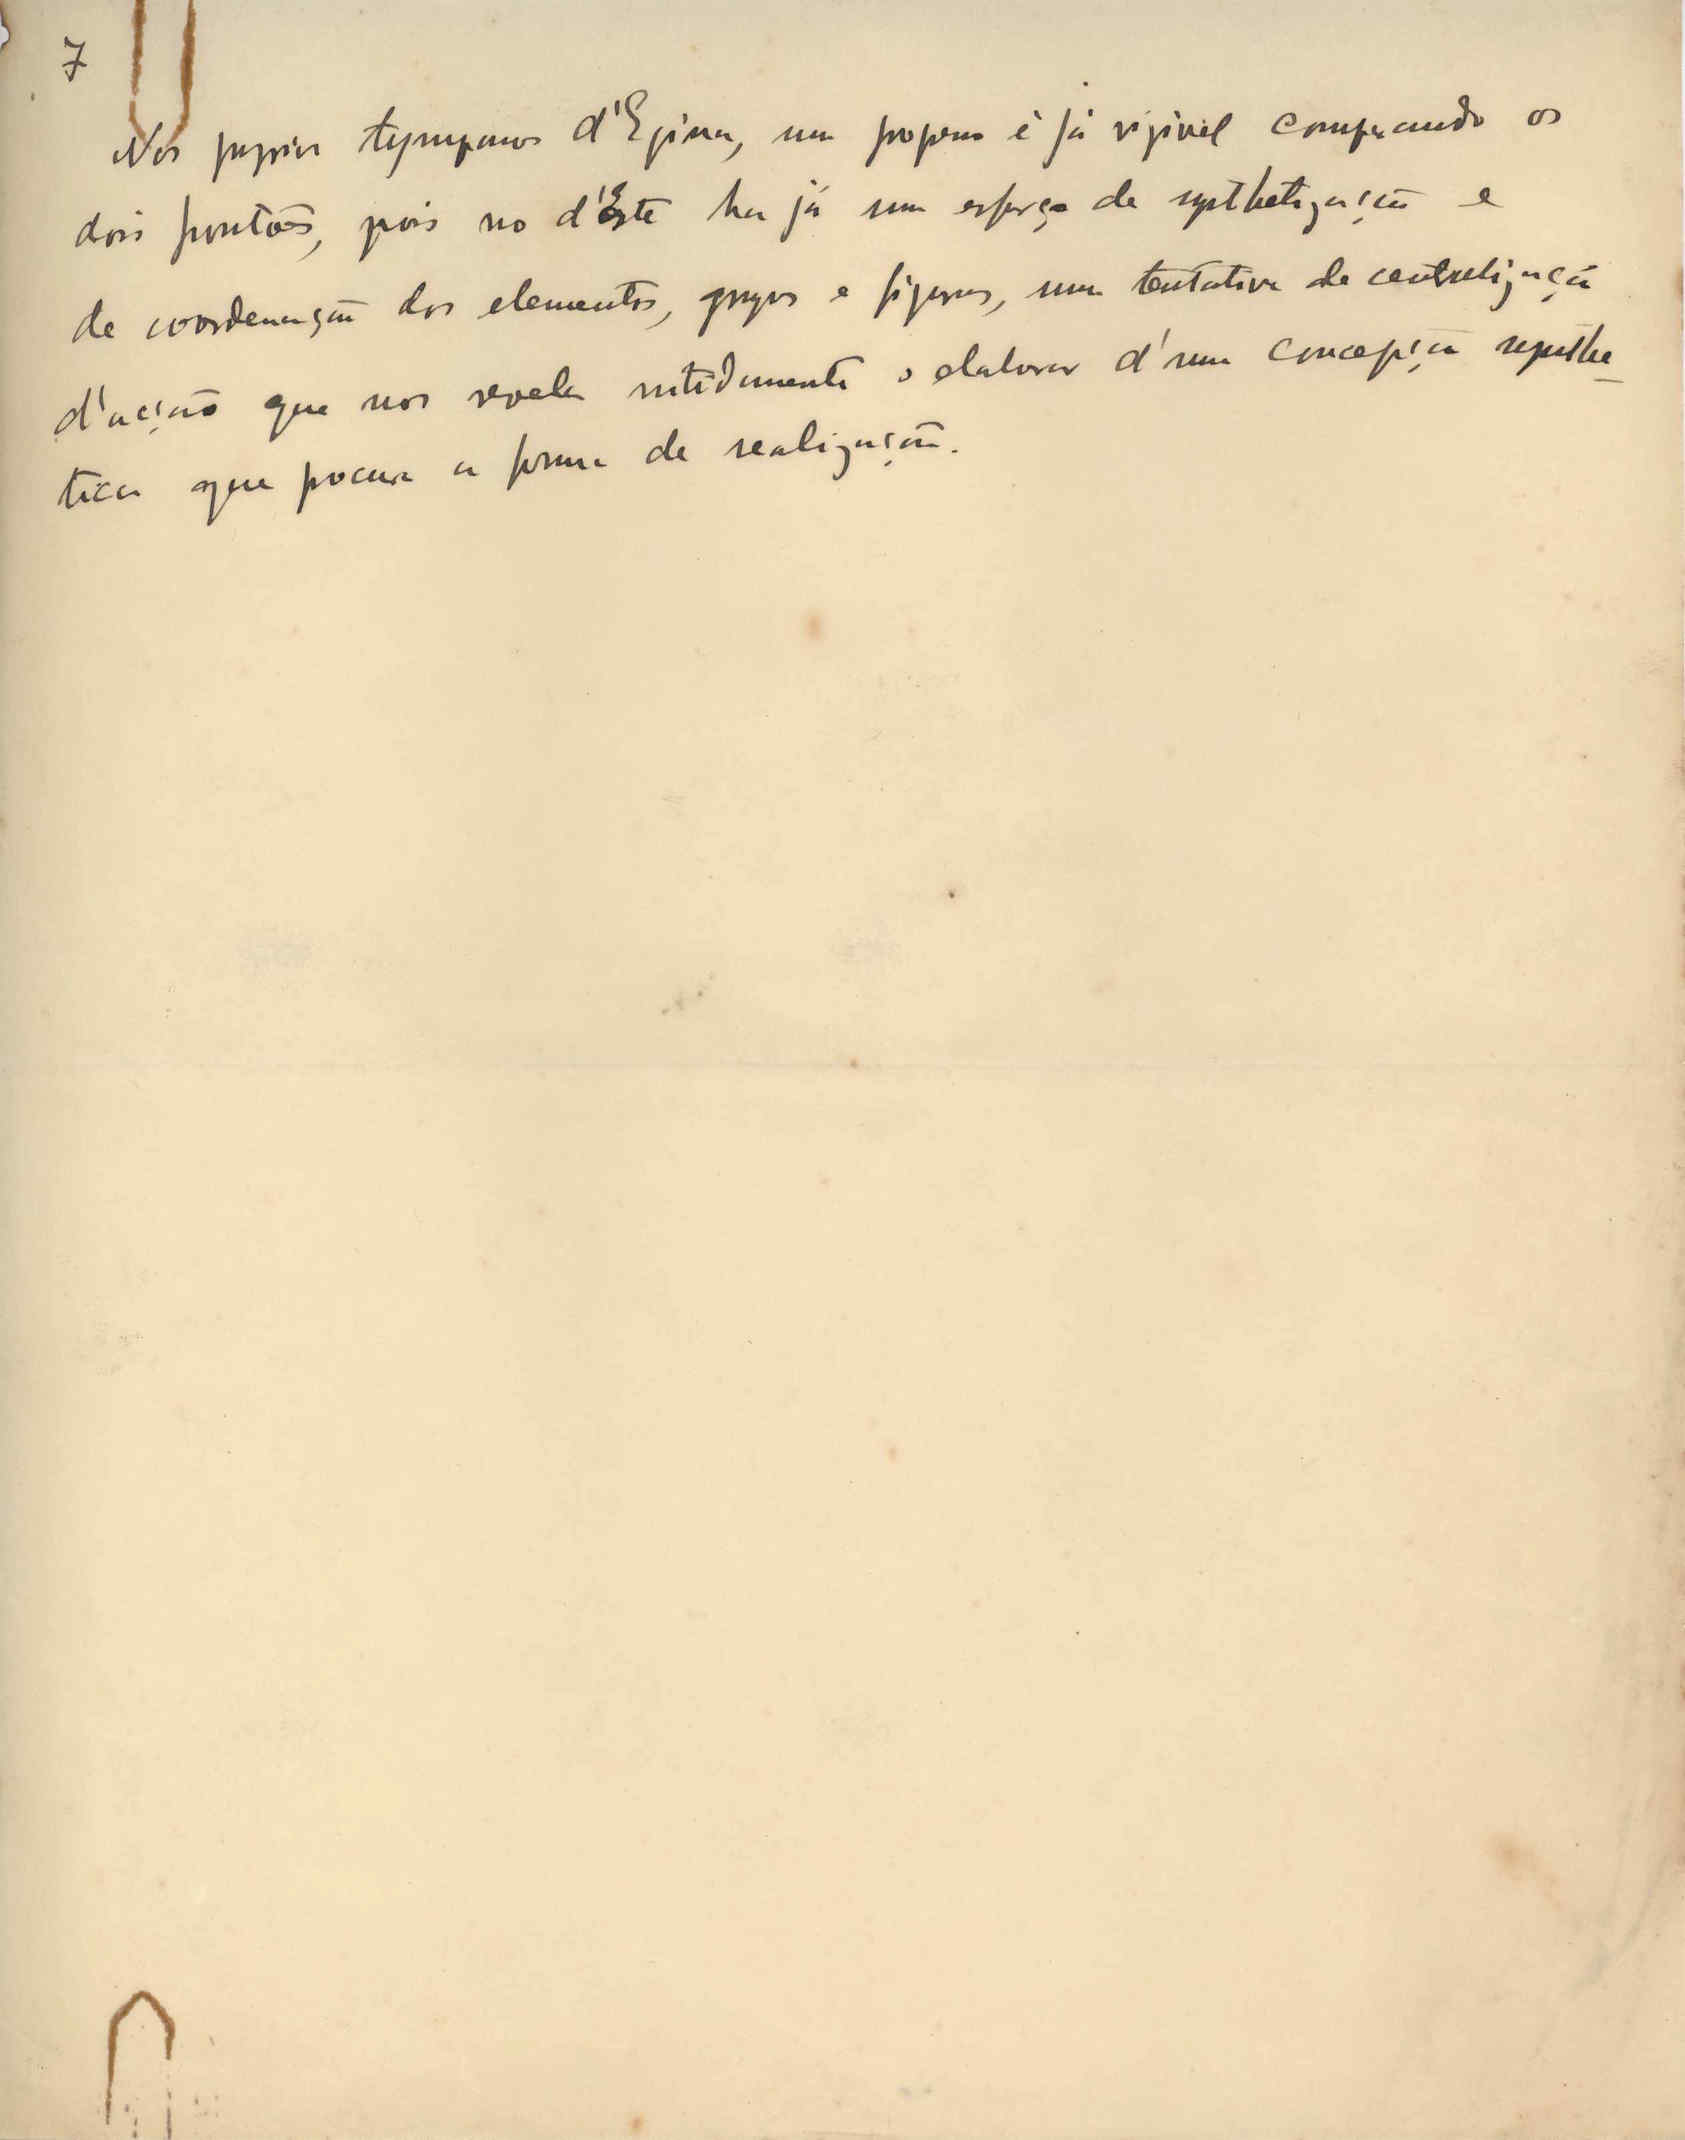 7
Nos proprios tympanos d'Egina, um progresso é já vizivel comparando os
dois frontões, pois no d'Este ha já um esforço de synthetização e
de coordenação dos elementos, grupos e figuras, uma tentativa de centralização
d'acção que nos revela nitidamente o elaborar d'uma concepção synthe-
tica que procura a forma de realização.